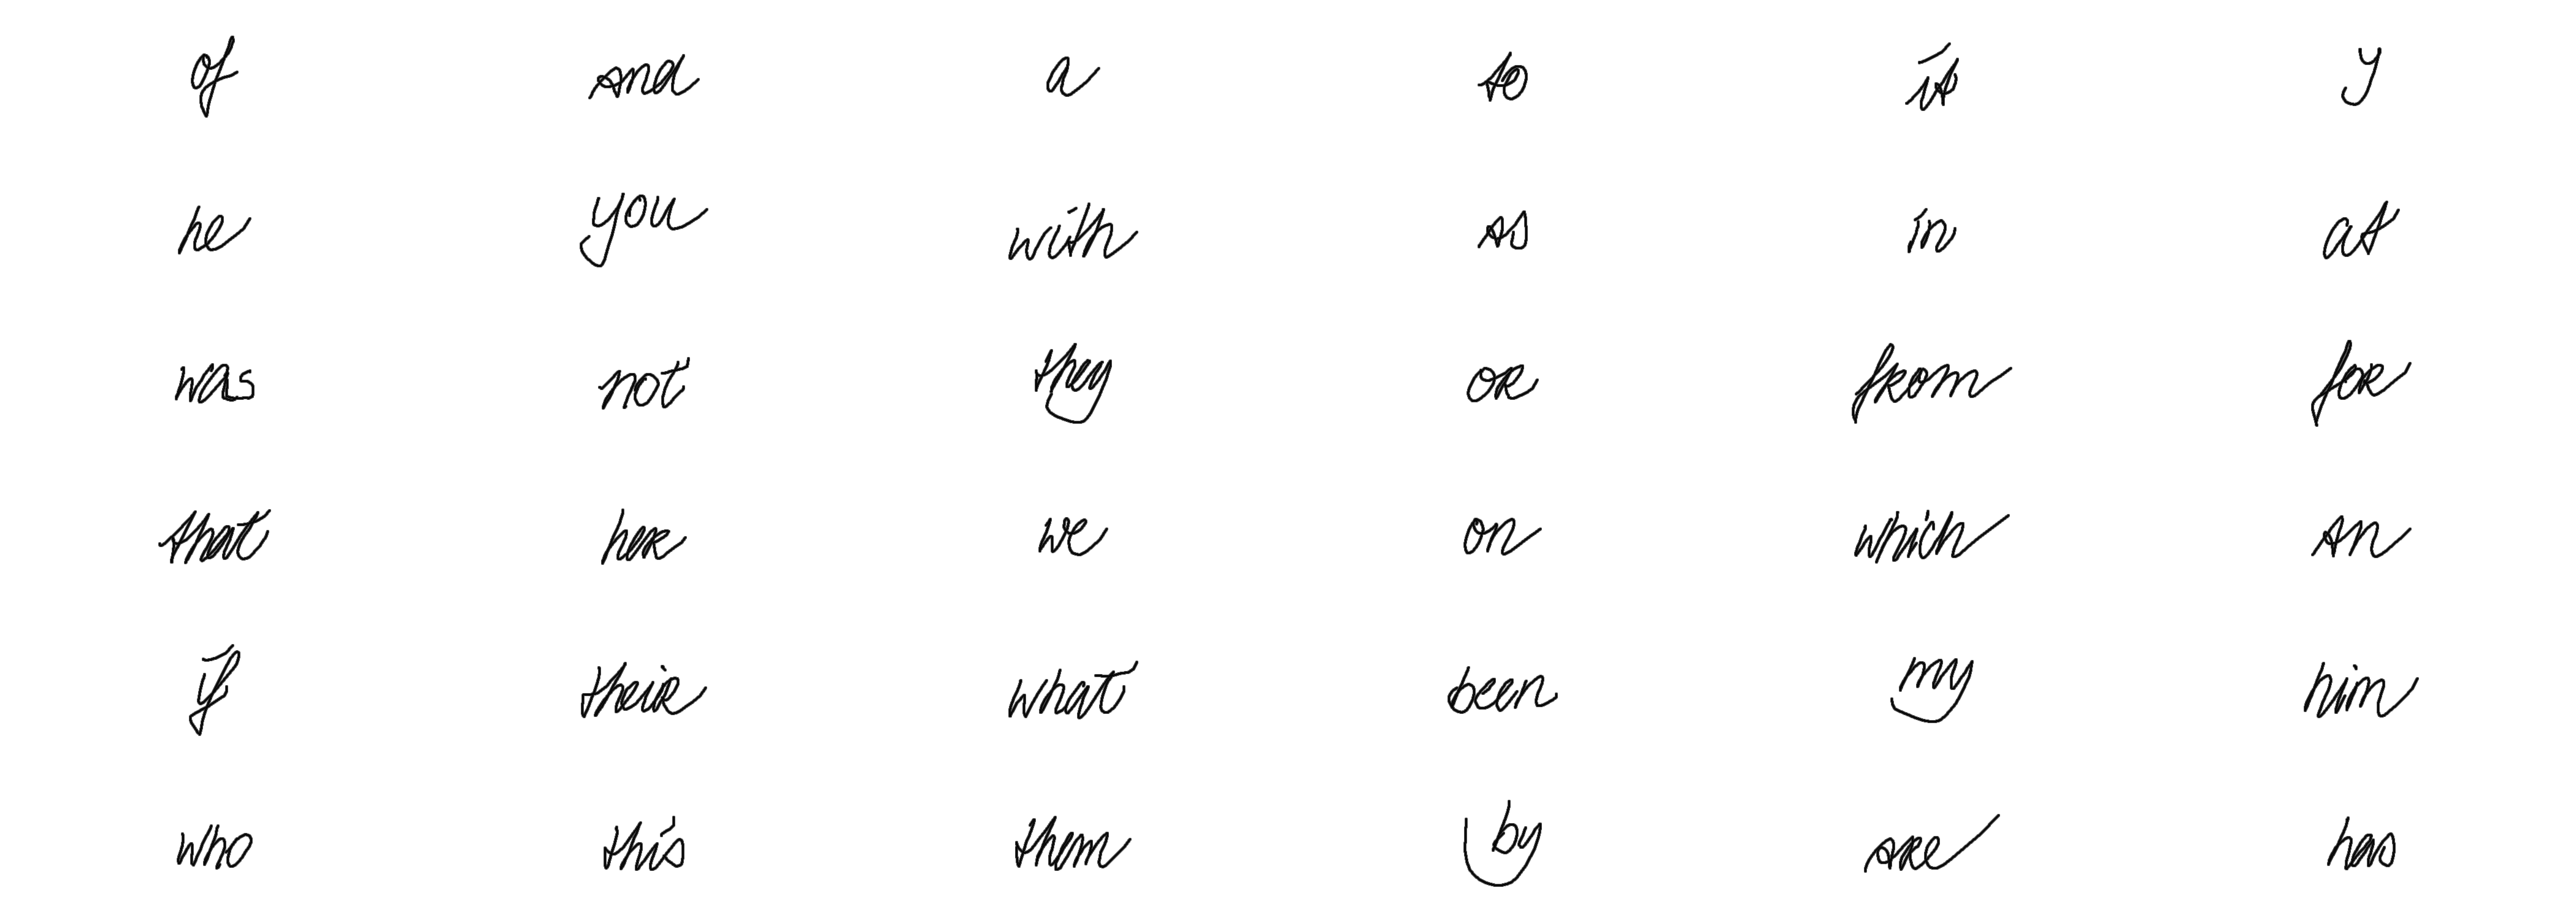 of and a to it y
he you with as in at
was not they or from for
that her we on which an
if their what been my him
who this them by are has